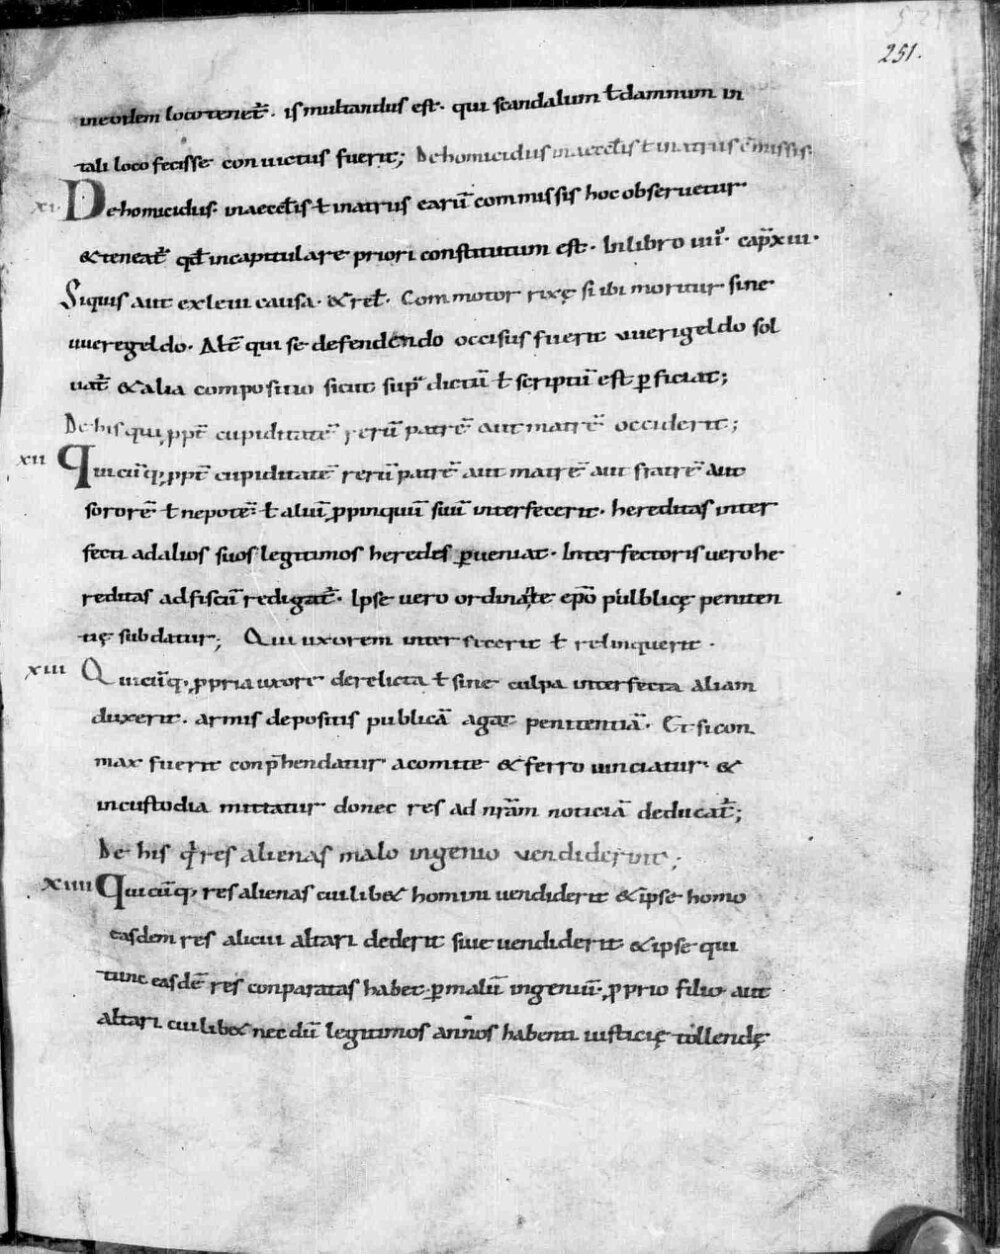 251.
ineodem loco tenet᷑. is multandus est. qui scandalum ł damnum in
tali loco fecisse convictus fuerit; De homicidiis in aeccłis ł in atriis c̄missis.
XI. De homicidiis. in aeccłis ł in atriis earū commissis hoc observetur
& teneat᷑ qđ in capitulare priori constitutum est. In libro IIII᷑. cap̄ XIII.
Siquis aut ex levi causa. & reł. Commotor rixę si ibi moritur sine
uueregeldo. Alt̄ qui se defendendo occisus fuerit vuerigeldo sol
vat᷑ & alia compositio sicut sup᷑ dictū ł scriptū est ꝑficiat;
De his qui ꝓpt̄ cupiditatē rerū patrē aut matrē occiderit;
XII Quicūq; ꝓpt̄ cupiditatē rerū patrē aut matrē aut fratrē aut
sororē ł nepotē ł aliū ꝓpinquū suū interfecerit. hereditas inter
fecti ad alios suos legitimos heredes ꝑveniat. Interfectoris vero he
reditas ad fiscū redigat᷑. Ipse vero ordinante ep̄o publicę peniten
tię subdatur; Qui uxorem interfecerit ł relinquerit.
XIII Quicūq; ꝓpria uxore derelicta ł sine culpa interfecta aliam
duxerit. armis depositis publicā agat penitentiā. Et si con
max fuerit conp̄hendatur a comite & ferro vinciatur. &
in custodia mittatur donec res ad nr̄am noticiā deducat᷑;
De his q᷑ res alienas malo ingenio vendiderint;
XIIII Quicūq; res alienas cuilib& homini vendiderit & ipse homo
easdem res alicui altari dederit sive vendiderit & ipse qui
tunc easdē res conparatas habet ꝑ malū ingeniū. ꝓprio filio aut
altari cuilib& necdū legitimos annos habenti iusticię tollendę